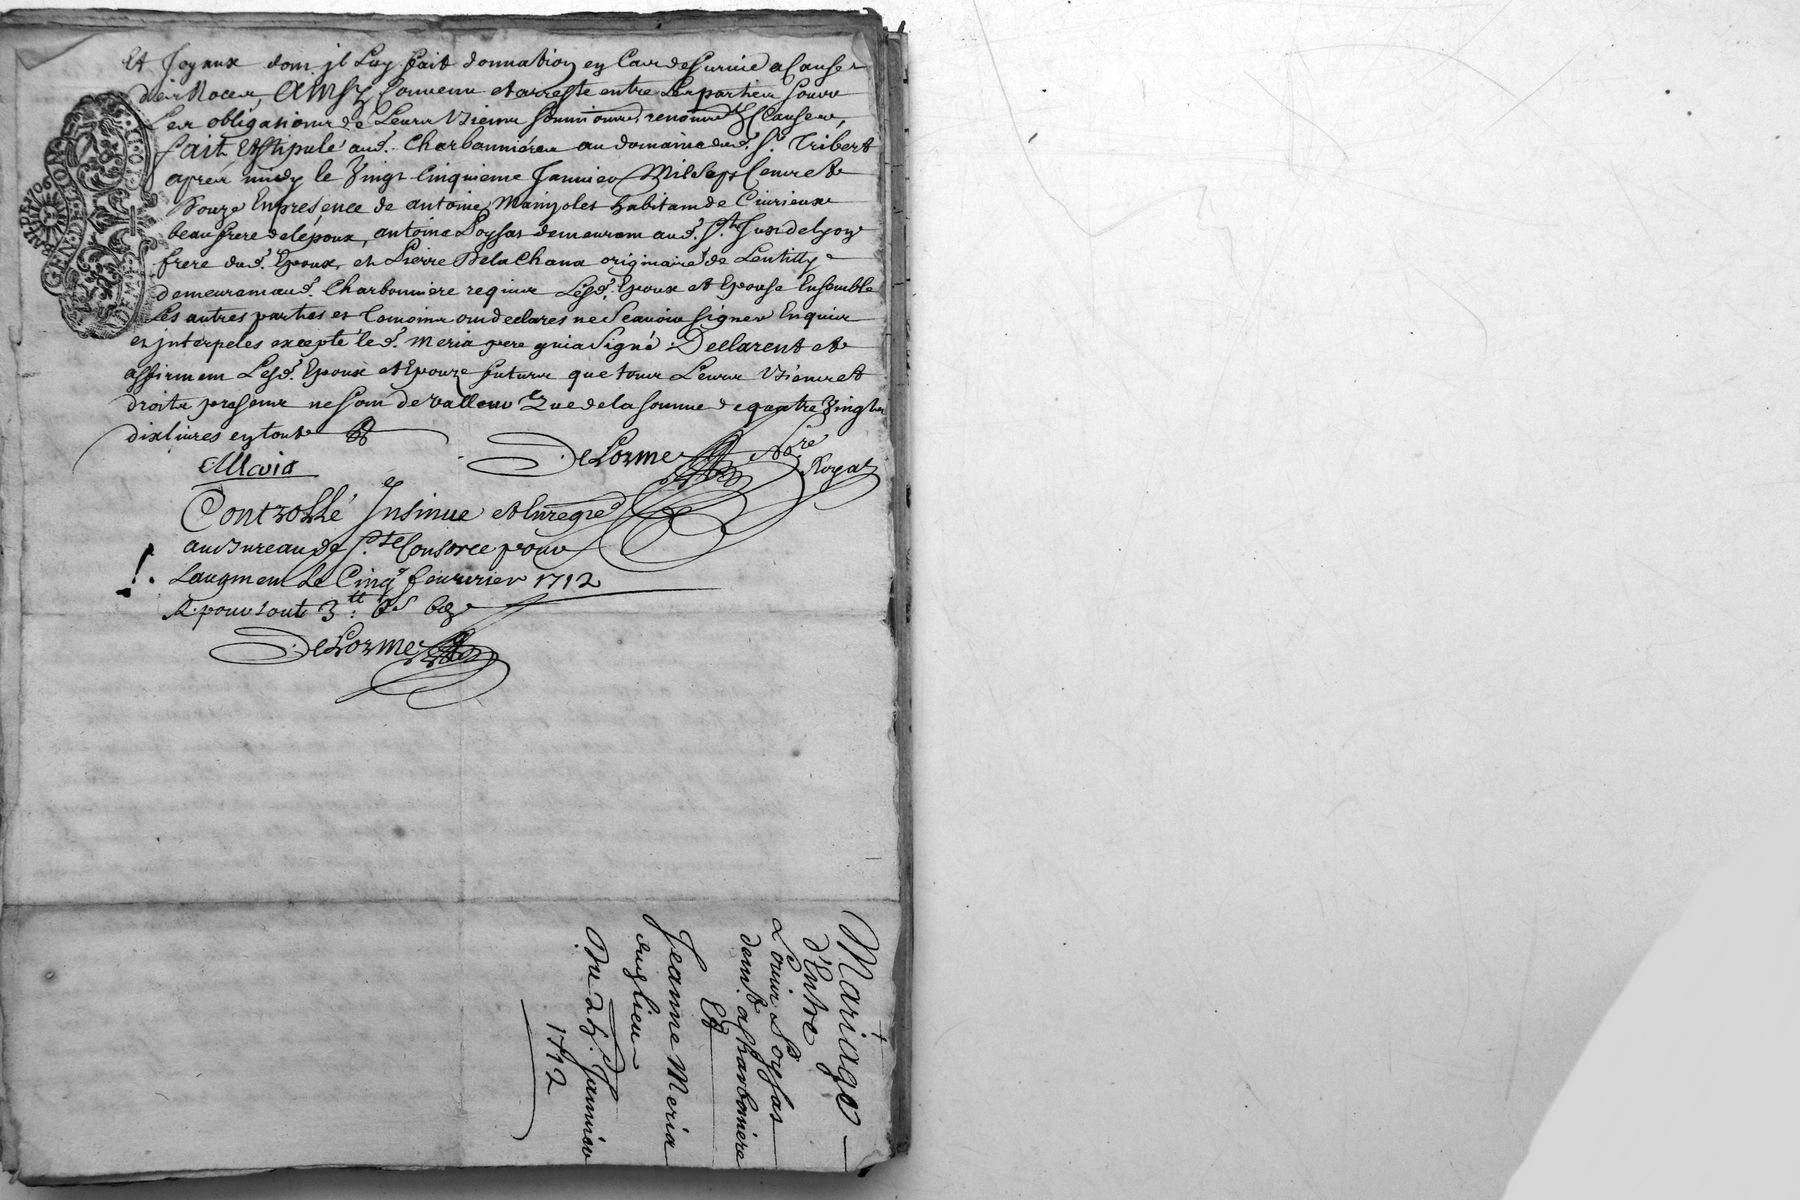 Et Joyaux dont jl Luy fait donnation en Cas de Survie a Cause
de Noces, AINSY Convenu et arresté entre Les parties Soubs
Les obligations de Leurs Biens Soumissions renon.ons & Clauses,
fait Et Stipulé aud. Charbonnieres au domaine dud. S.r Tribert
apres midy le Vingt Cinquieme Janvier Mil Sept Cent Et
Douze En presence de antoine Manjolet habitant de Civrieux
beaufrere de lépoux, antoine Loysas demeurant aud. S.t Just de Lyon
frere dud. Epoux, et Pierre De la Chana originaire de Lentilly
demeurant aud. Charbonniere requis Lesd. Epoux et Epouse Ensemble
Les autres parties et temoins ont declarés ne Scavoir Signer Enquis
et jnterpelés excepté le d. Meria pere qui a Signé. Declarent et
affirment Lesd. Epoux et Epouze futurs que tous Leurs Biens et
droits presents ne Sont de valleur Que de la Somme de quatre Vingts
dix livres en tout
Maria
DeLorme No.re Royal
Controllé Jnsinué et Enregré
au Bureau de S.te Consorce pour
Laugment Le Cinq.e fevrier 1712
R. pour tout 3.tt
DeLorme
GEN. DE LION
Mariage
d'Entre
Louis Loysas
demt. a Charboniere
Et
Jeanne Meria
dud lieu
Du 25. Janvier
1712